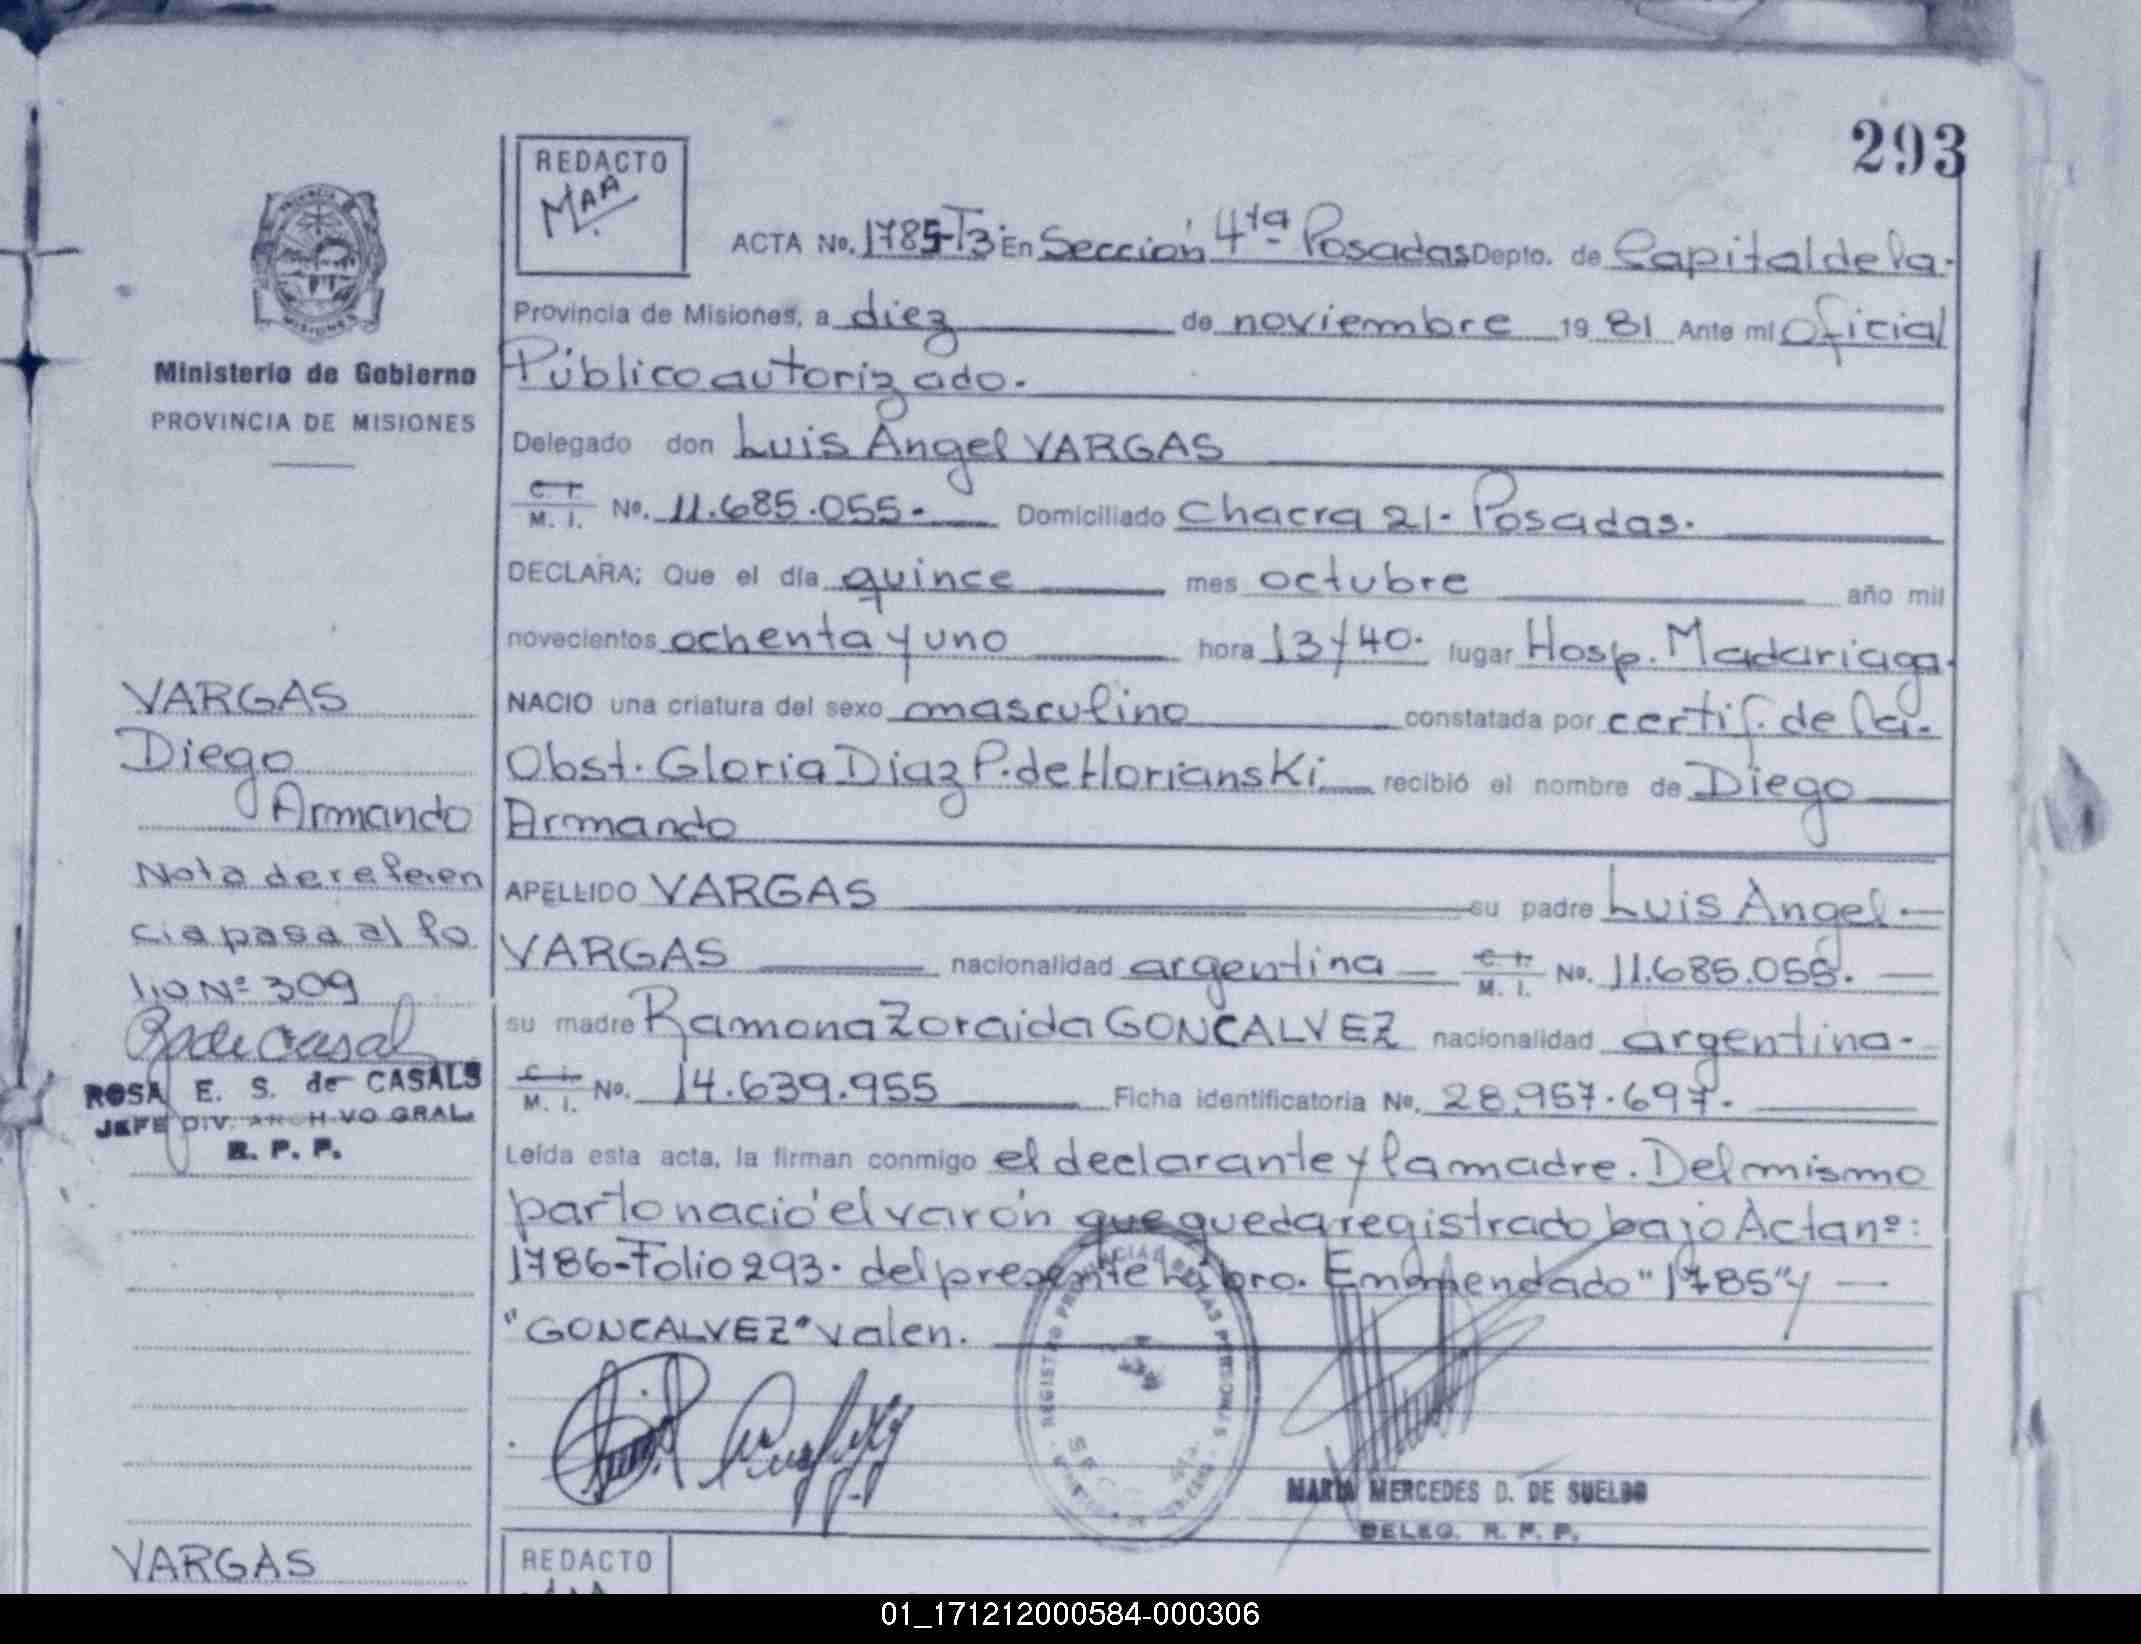 293
REDACTO
MAA
ACTA No. 1785-T3 En Sección 4ta Posadas Depto. de Capital de la
Provincia de Misiones, a diez de noviembre 1981 Ante mi Oficial
Público autorizado.
Delegado don Luis Angel VARGAS
C. I.
M. I. No. 11.685.055.- Domiciliado Chacra 21- Posadas.
DECLARA; Que el día quince mes octubre año mil
novecientos ochenta y uno hora 13 y 40. lugar Hosp. Madariaga.
NACIO una criatura del sexo masculino constatada por certif. de la.
Obst. Gloria Diaz P. de Horianski recibió el nombre de Diego
Armando
APELLIDO VARGAS su padre Luis Angel
VARGAS nacionalidad argentina C. I. M. I. No. 11.685.055.
su madre Ramona Zoraida GONCALVEZ nacionalidad argentina.
C. I.
M. I. No. 14.639.955 Ficha identificatoria No. 28.957.697.
Leída esta acta, la firman conmigo el declarante y la madre. Del mismo
parto nació el varón que queda registrado bajo Acta nº:
1786-Folio 293. del presente Libro. Enmendado "1785" y
"GONCALVEZ" valen.
MARIA MERCEDES D. DE SUELDO
DELEG. R. P. P.
MISIONES
Ministerio de Gobierno
PROVINCIA DE MISIONES
VARGAS
Diego
Armando
Nota de referen
cia pasa al fo
lio Nº 309
ROSA E. S. de CASALS
JEFE DIV. ARCHIVO GRAL.
R. P. P.
VARGAS
REDACTO
01_171212000584-000306